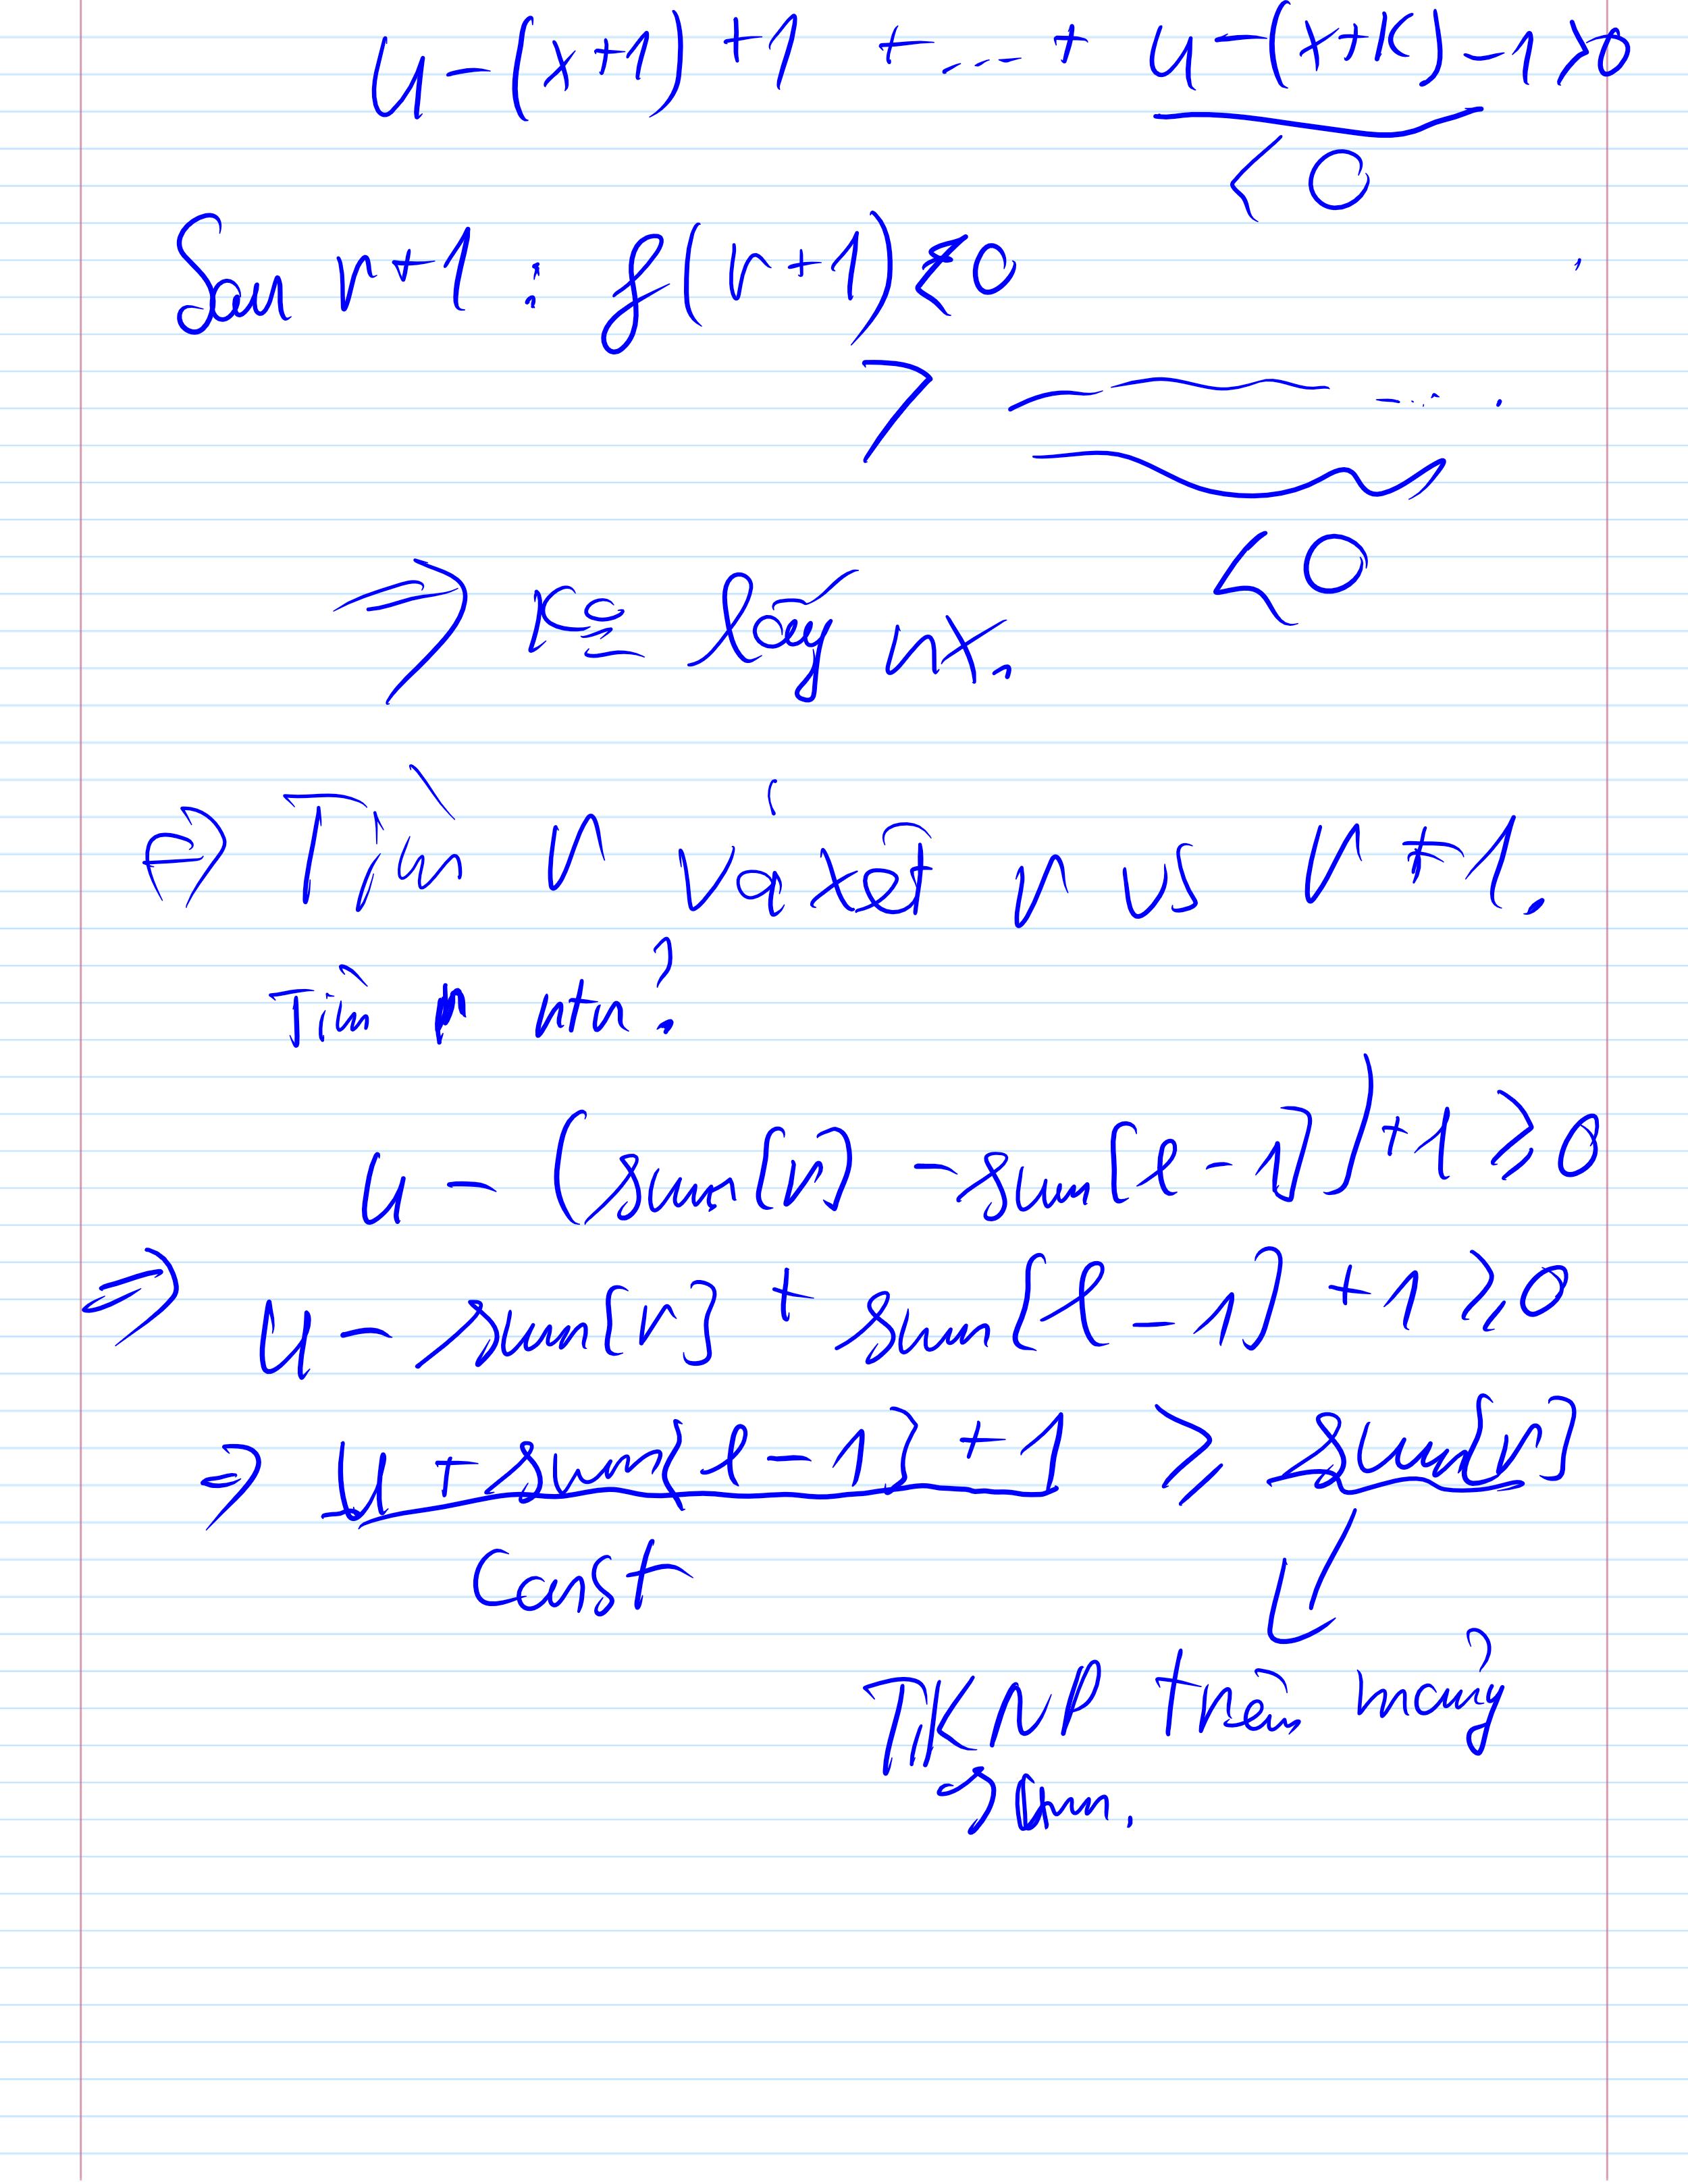 u - (x+1) + 1 + ... + u - (x+k) - 1 > 0
< 0
Sau r+1 : f(r+1) < 0
>
< 0
⇒ lấy nx.
⇒ Tìm r và xét r vs r + 1.
Tìm r ntn?
u - (sum[r] - sum[l - 1]) + 1 ≥ 0
⇒ u - sum[r] + sum[l - 1] + 1 ≥ 0
⇒ u + sum[l - 1] + 1 ≥ sum[r]
Const
TKNP trên mảng
sum.